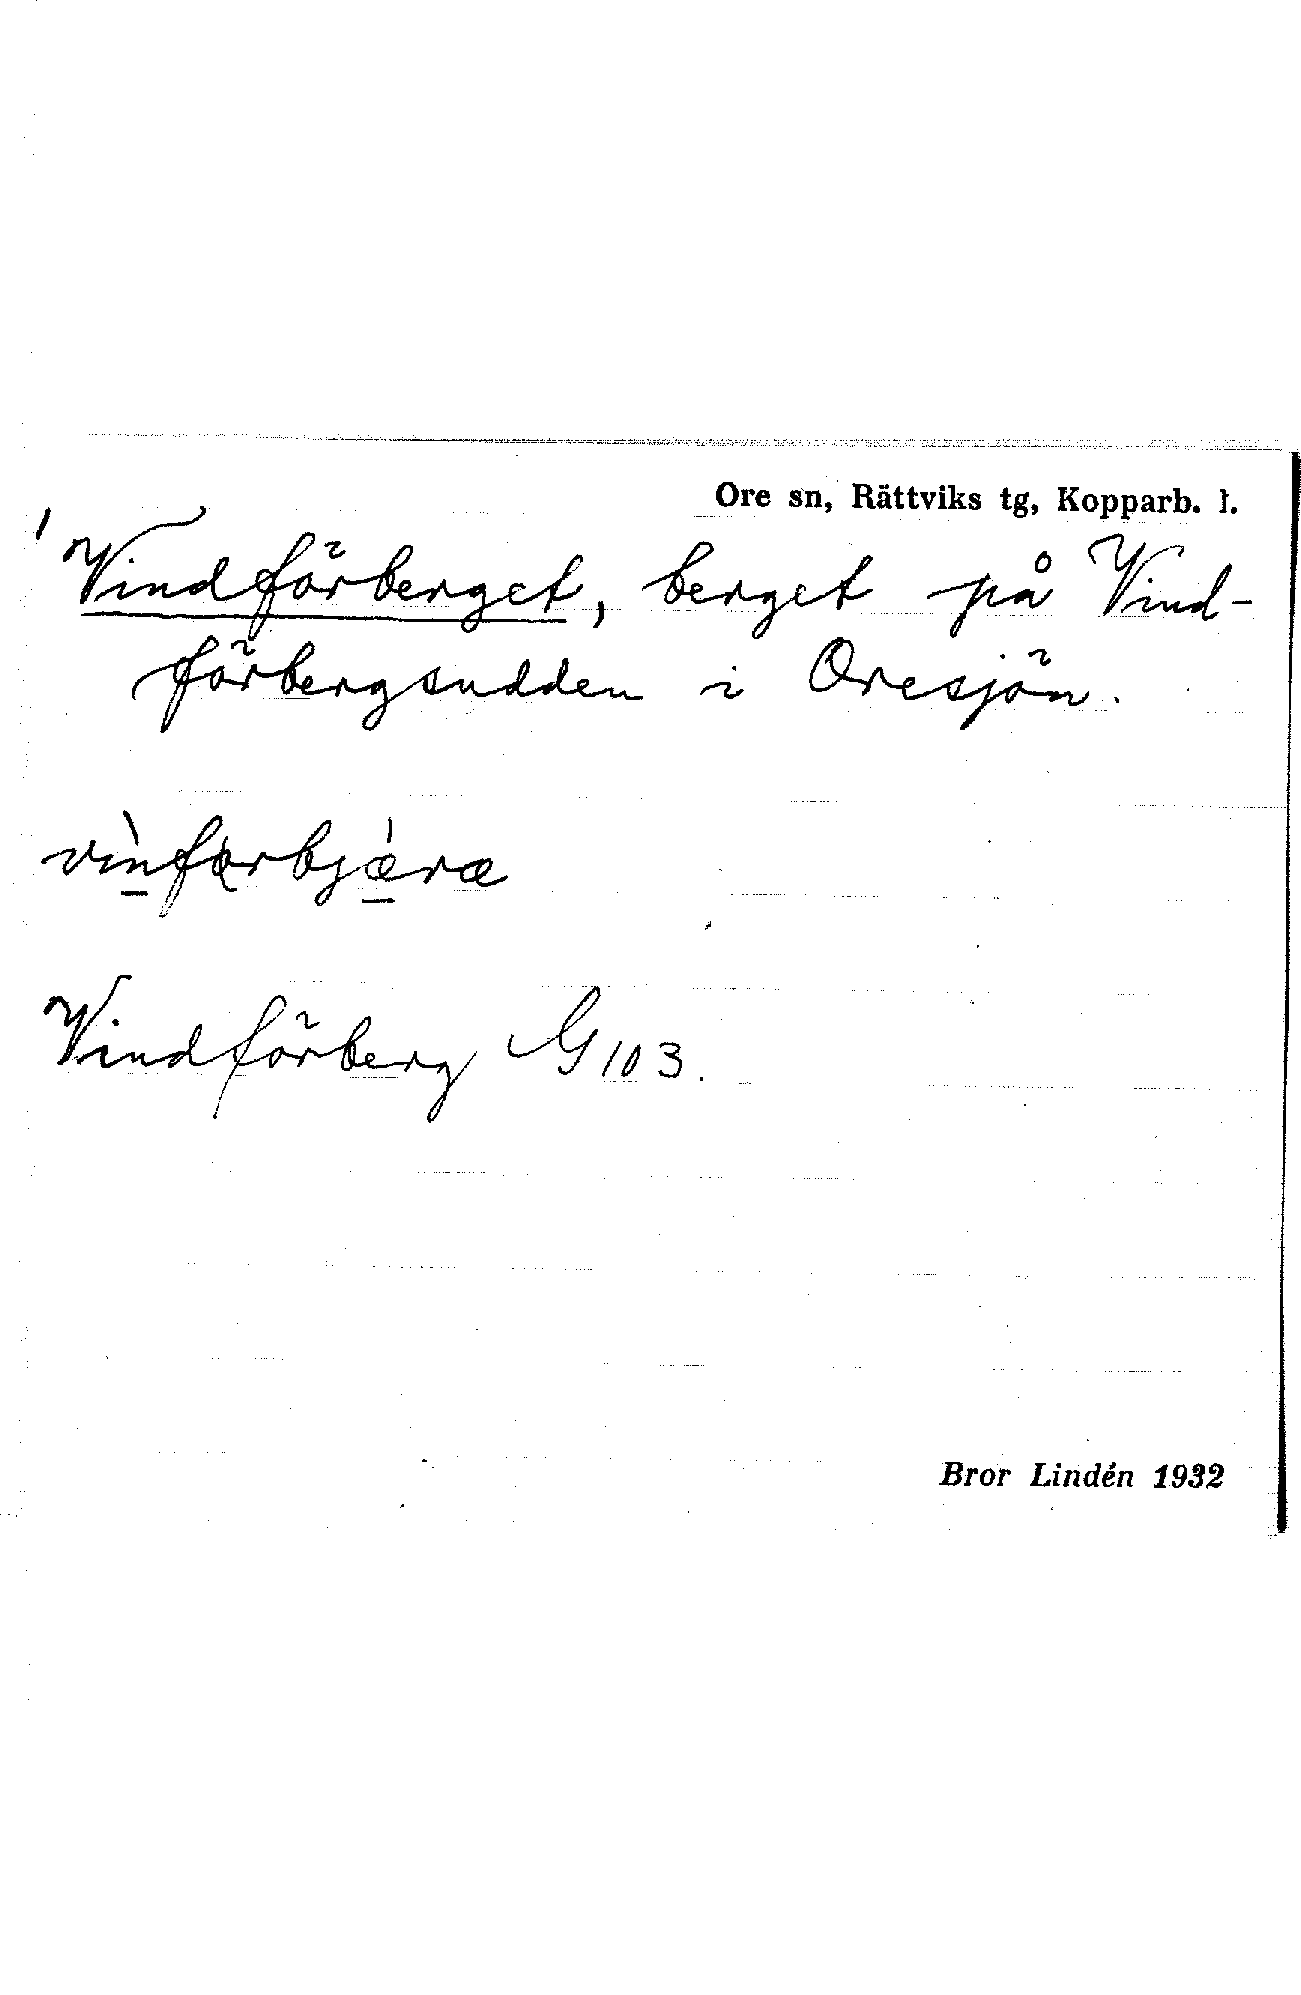 Ore sn, Rättviks tg, Kopparb. l.
Vindförberget, berget på Vind-
förbergsudden i Oresjön.
vìnforbjǽræ
Vindförberg G 103.
Bror Lindén 1932